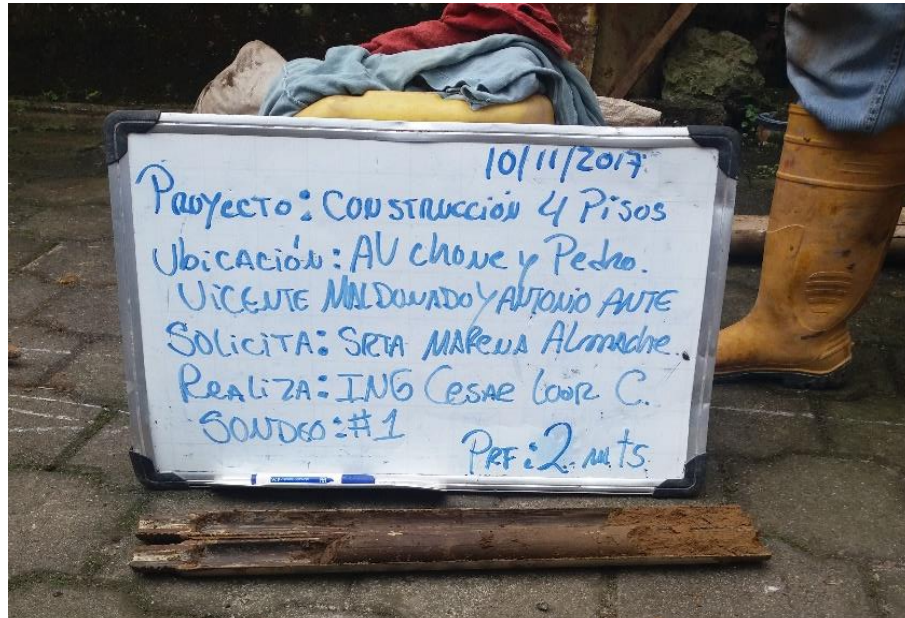 10/11/2017
PROYECTO: CONSTRUCCIÓN 4 PISOS
UbicACIÓN: AV CHONE y Pedro.
VICENTE MALDONADO Y ANTONIO ANTE
SOLICITA: SRTA MARENA ALMACHE.
REALIZA: ING CESAR LOOR C.
SONDEO: #1
PRF: 2 mts.